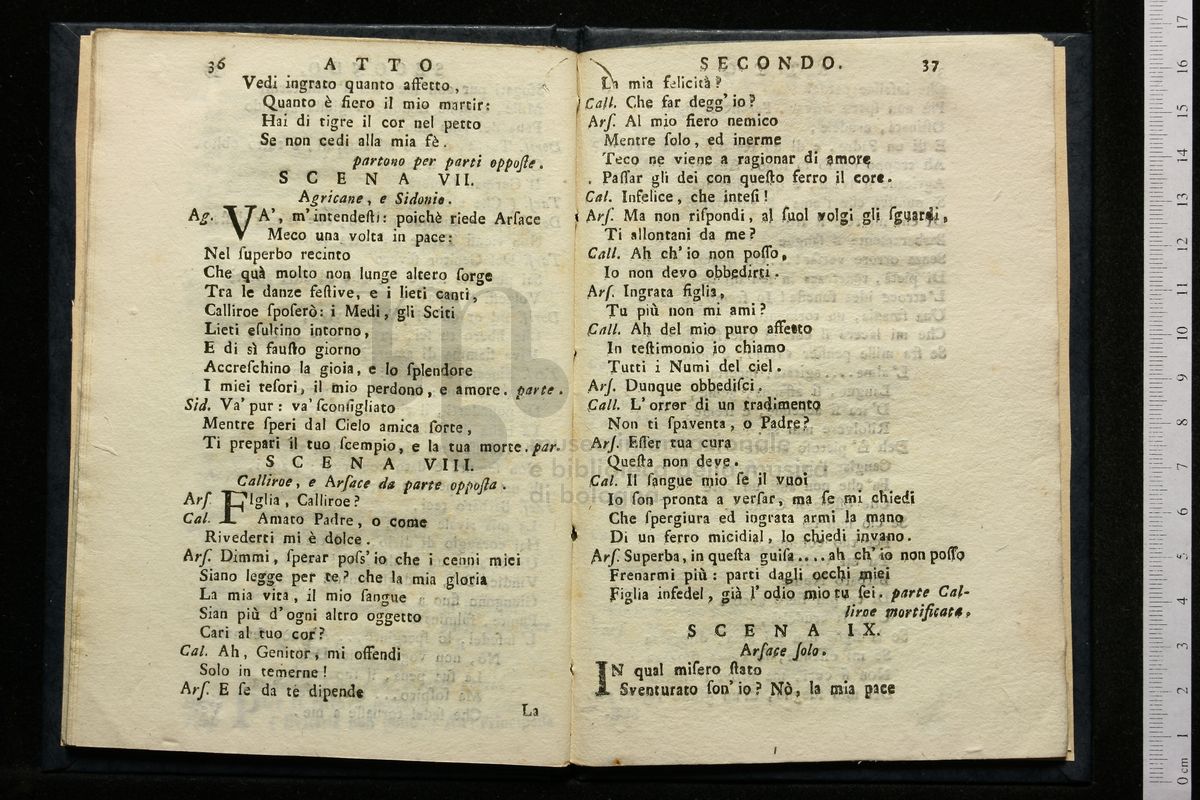 36 ATTO
Vedi ingrato quanto affetto,
Quanto è fiero il mio martir:
Hai di tigre il cor nel petto
Se non cedi alla mia fè.
partono per parti oppoſte.
SCENA VII.
Agricane, e Sidonio.
Ag. VA', m'intendeſti: poichè riede Arſace
Meco una volta in pace:
Nel ſuperbo recinto
Che quà molto non lunge altero ſorge
Tra le danze feſtive, e i lieti canti,
Calliroe ſpoſerò: i Medi, gli Sciti
Lieti eſultino intorno,
E di sì fauſto giorno
Accreſchino la gioia, e lo ſplendore
I miei teſori, il mio perdono, e amore. parte.
Sid. Va' pur: va' ſconſigliato
Mentre ſperi dal Cielo amica ſorte,
Ti prepari il tuo ſcempio, e la tua morte. par.
SCENA VIII.
Calliroe, e Arſace da parte oppoſta.
Arſ. FIglia, Calliroe?
Cal. Amato Padre, o come
Rivederti mi è dolce.
Arſ. Dimmi, ſperar poſs'io che i cenni miei
Siano legge per te? che la mia gloria
La mia vita, il mio ſangue
Sian più d'ogni altro oggetto
Cari al tuo cor?
Cal. Ah, Genitor, mi offendi
Solo in temerne!
Arſ. E ſe da te dipende
La
SECONDO. 37
La mia felicità?
Call. Che far degg'io?
Arſ. Al mio fiero nemico
Mentre ſolo, ed inerme
Teco ne viene a ragionar di amore
Paſſar gli dei con queſto ferro il core.
Cal. Infelice, che inteſi!
Arſ. Ma non riſpondi, al ſuol volgi gli ſguardi,
Ti allontani da me?
Call. Ah ch'io non poſſo,
Io non devo obbedirti.
Arſ. Ingrata figlia,
Tu più non mi ami?
Call. Ah del mio puro affetto
In teſtimonio io chiamo
Tutti i Numi del ciel.
Arſ. Dunque obbediſci.
Call. L'orror di un tradimento
Non ti ſpaventa, o Padre?
Arſ. Eſſer tua cura
Queſta non deve.
Cal. Il ſangue mio ſe il vuoi
Io ſon pronta a verſar, ma ſe mi chiedi
Che ſpergiura ed ingrata armi la mano
Di un ferro micidial, lo chiedi invano.
Arſ. Superba, in queſta guiſa.... ah ch'io non poſſo
Frenarmi più: parti dagli occhi miei
Figlia infedel, già l'odio mio tu ſei. parte Cal-
liroe mortificata.
SCENA IX.
Arſace ſolo.
IN qual miſero ſtato
Sventurato ſon'io? Nò, la mia pace
museo internazionale
e biblioteca della musica
di bologna
0 cm 1 2 3 4 5 6 7 8 9 10 11 12 13 14 15 16 17